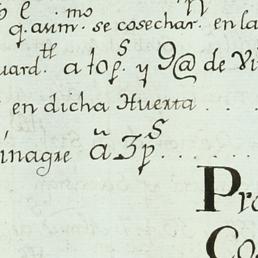 q. asim.mo se cosechar. en la
uard.tt a 10 p.s y 9@ de Vi
en dicha Huerta . . . .
inagre â 3 p.s . . . . . . .
Pro
Co